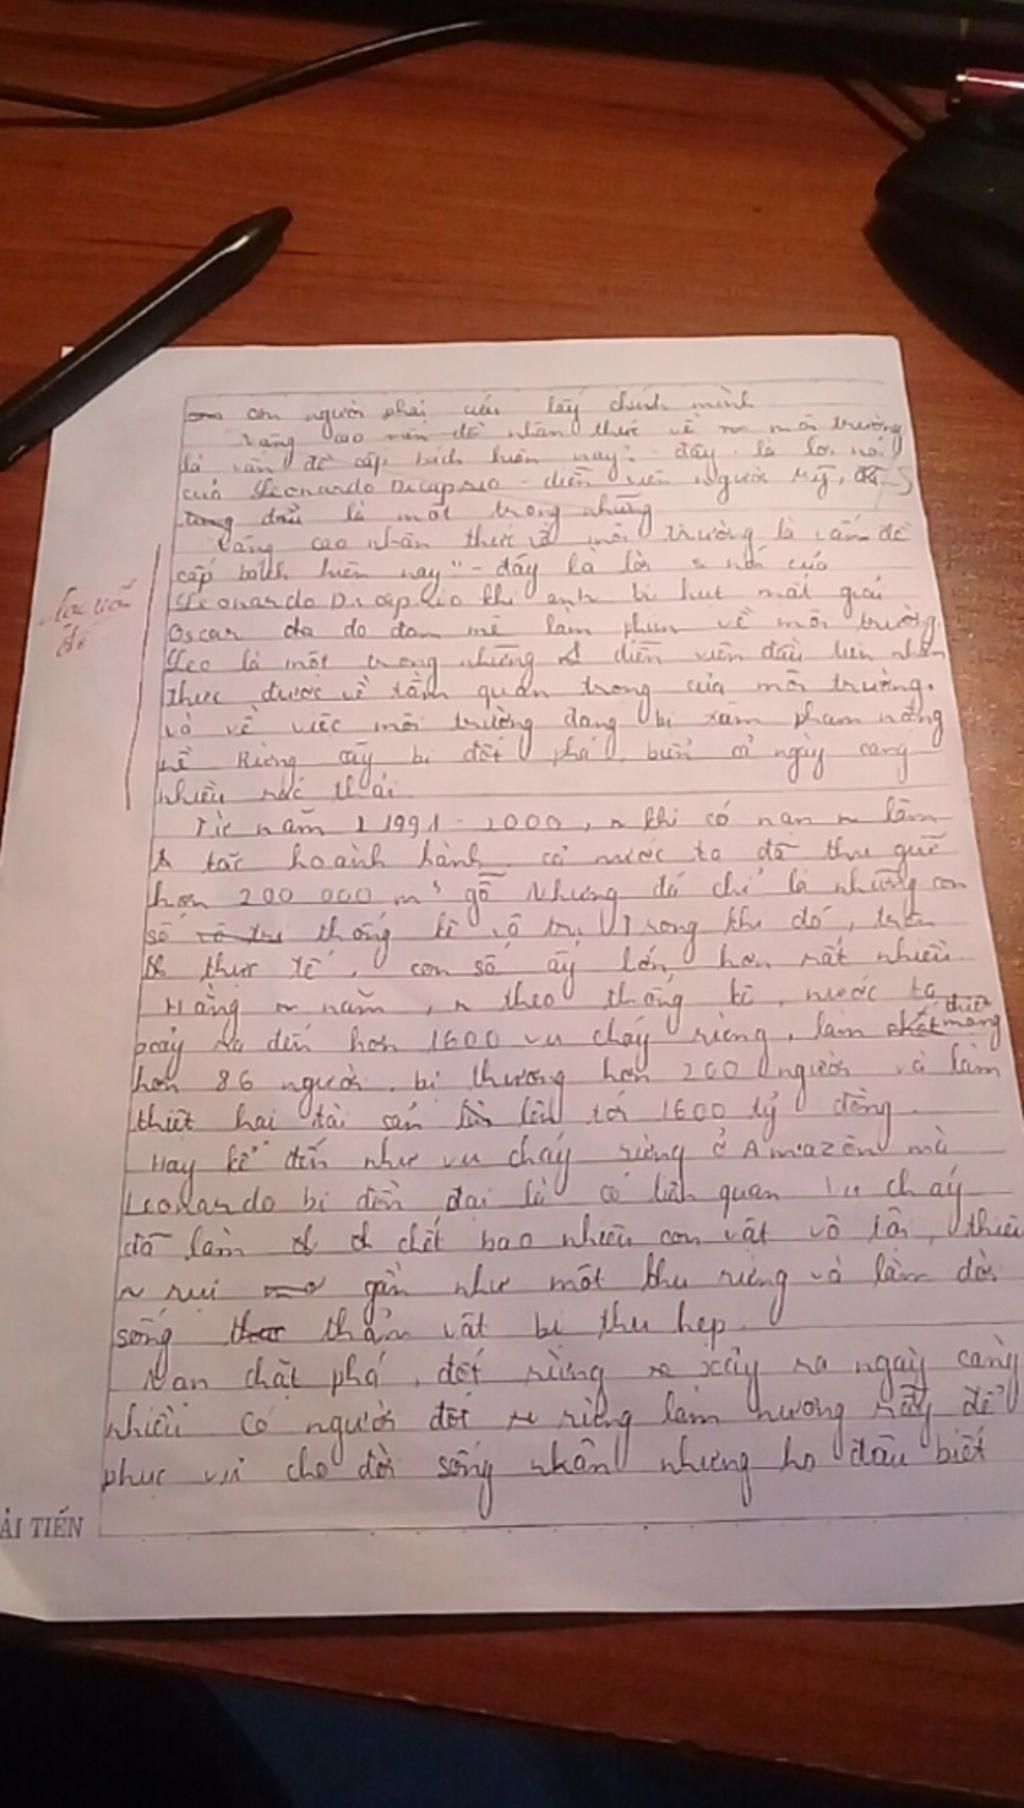 con người phải cứu lấy chính mình
nâng cao vấn đề nhân thức về môi trường
là vấn đề cấp bách hiện nay: - đây là lời nói
của Leonardo Dicaprio - diễn viên người Mỹ,
đầu là một trong những
nâng cao nhân thức về môi trường là vấn đề
cấp bách hiện nay" - đây là lời nói của
Leonardo Dicaprio khi anh bị hụt mất giải
Oscar do đam mê làm phim về môi trường.
Leo là một trong những diễn viên đầu tiên nhân
thức được về tầm quan trong của môi trường.
và về việc môi trường đang bị xâm pham nặng
nề Rừng cây bị đốt phá, biển cả ngày càng
nhiều rác thải.
lạc vấn
đề
Từ năm 1991 - 2000, khi có nan lâm
tăc hoành hành, cả nước ta đã thu giữ
hơn 200 000 m³ gỗ Nhưng đó chỉ là những con
số thống kê Trong khi đó, trên
thực tế, con số ấy lớn hơn rất nhiều.
Hằng năm, theo thống kê, nước ta
xảy ra đến hơn 1600 vụ cháy rừng, làm thiệt mạng
hơn 86 người, bị thương hơn 200 người và làm
thiệt hai tài sản lên tới 1600 tỷ đồng.
Hay kể đến như vu cháy rừng ở Amazôn mà
Leonardo bị đồn đai là có liên quan Vu cháy
đã làm chết bao nhiêu con vật vô tội, thiêu
rụi gần như một khu rừng và làm đời
sống thảm vật bị thu hẹp.
Nan chặt phá, đốt rừng xảy ra ngày càng
nhiều Có người đốt rừng làm nương rẫy để
phuc vụ cho đời sống nhưng ho đâu biết
ẢI TIẾN